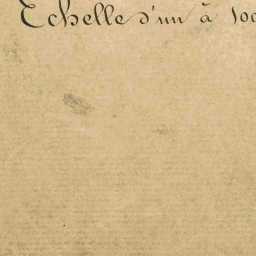 Echelle d'un à 100